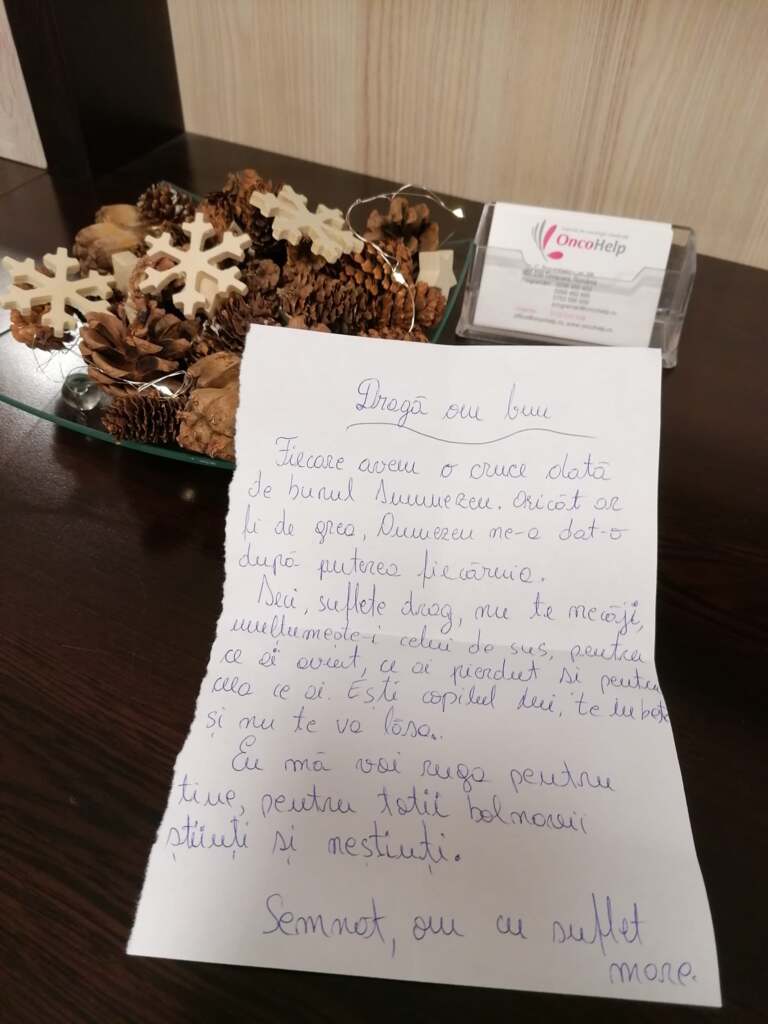 OncoHelp
Dragă om bun
Fiecare avem o cruce dată
de bunul Dumnezeu. Oricât ar
fi de grea, Dumezeu ne-a dat-o
după puterea fiecăruia.
Deci, suflete drag, nu te necăji,
mulțumește-i celui de sus, pentru
ce ai avut, ce ai pierdut si pentru
ceea ce ai. Ești copilul Lui, te iubește
și nu te va lăsa.
Eu mă voi ruga pentru
tine, pentru totii bolnavii
știuți și neștiuți.
Semnat, om cu suflet
mare.